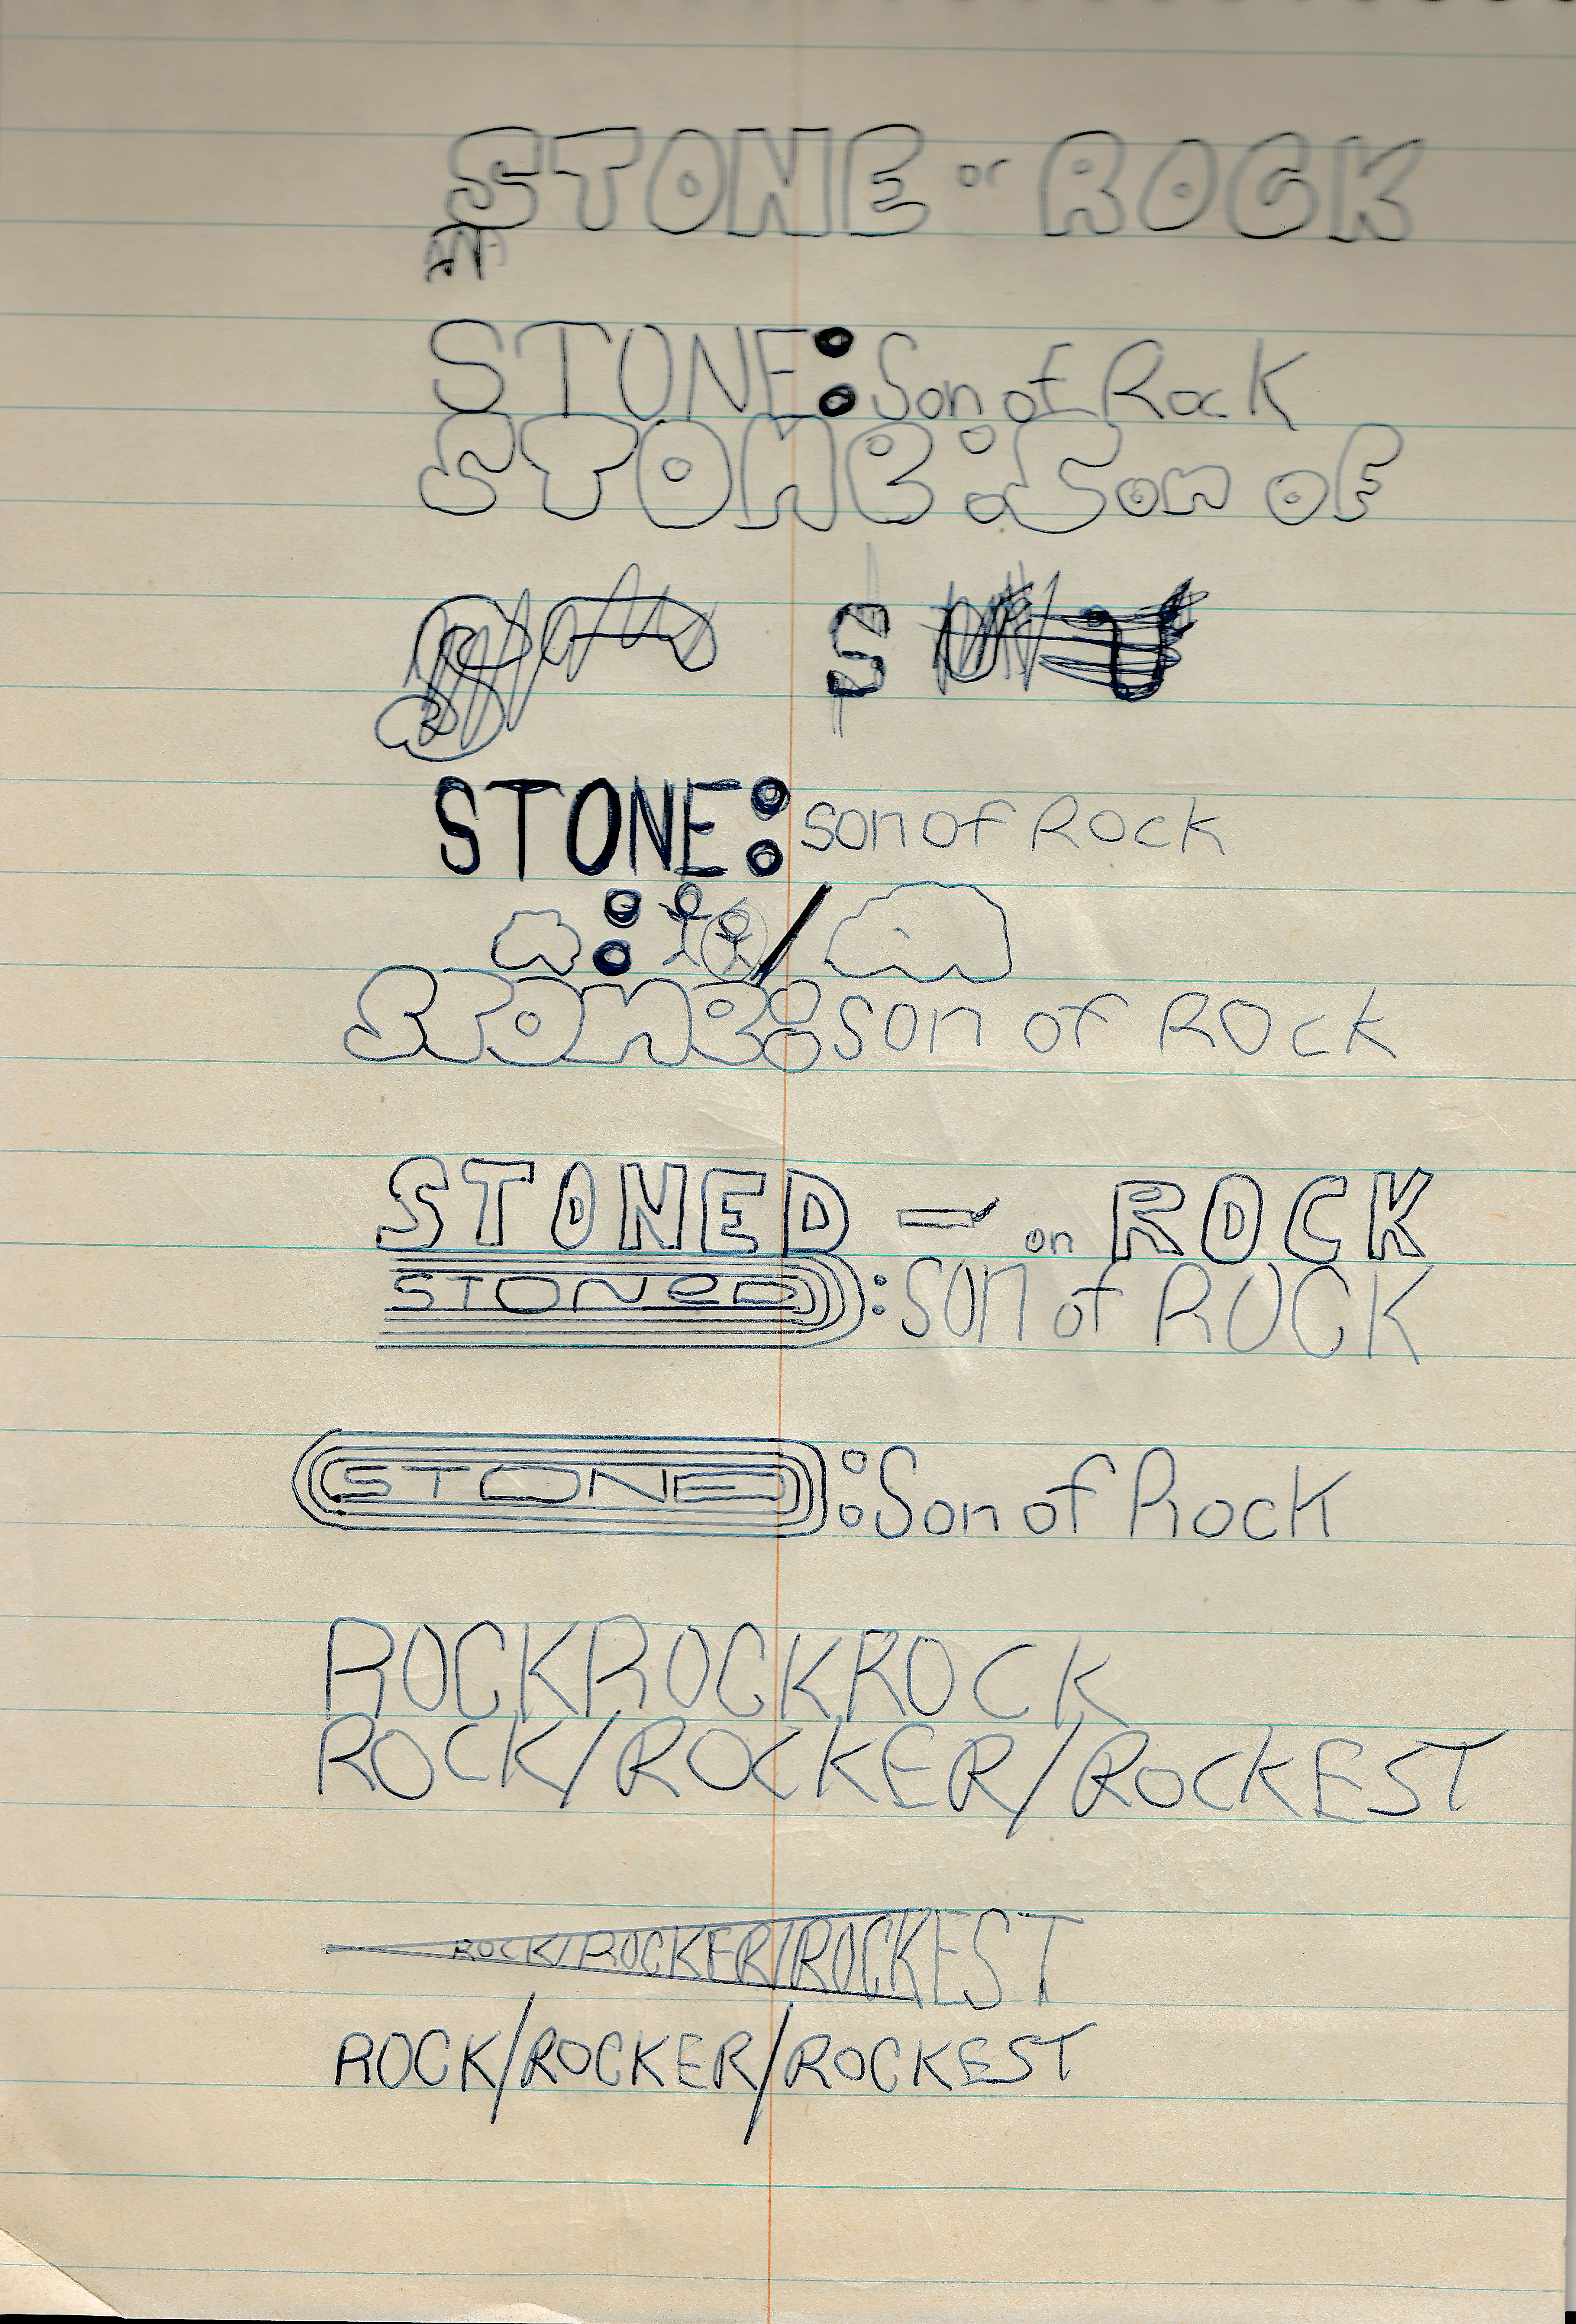 STONE or ROCK
STONE: Son of Rock
STONE: Son of
S
STONE: son of Rock
STONE: son of ROCK
STONED - on ROCK
STONeD: SON of ROCK
STONE: Son of Rock
ROCKROCKROCK
ROCK/ROCKER/ROCKEST
ROCK/ROCKER/ROCKEST
ROCK/ROCKER/ROCKEST